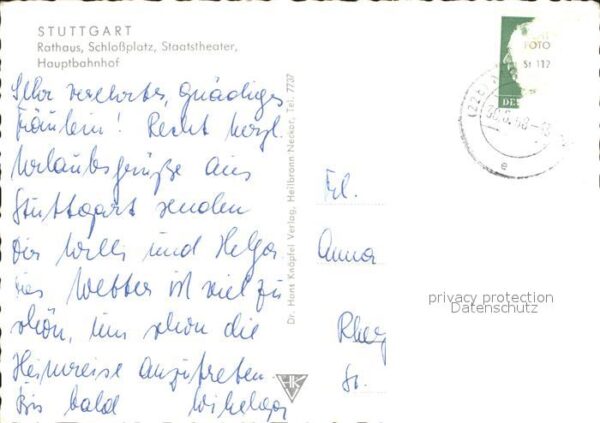 STUTTGART
Rathaus, Schloßplatz, Staatstheater,
Hauptbahnhof
Sehr verehrtes, gnädiges
Fräulein! Recht herzl.
Urlaubsgrüße aus
Stuttgart senden
Dir Willi und Helga
Das Wetter ist viel zu
schön, um schon die
Heimreise anzutreten.
Bis bald
Dr. Hans Knöpfel Verlag, Heilbronn Neckar, Tel. 7737
HK
Frl.
Anna
Rhey
FOTO
St 112
e
privacy protection
Datenschutz